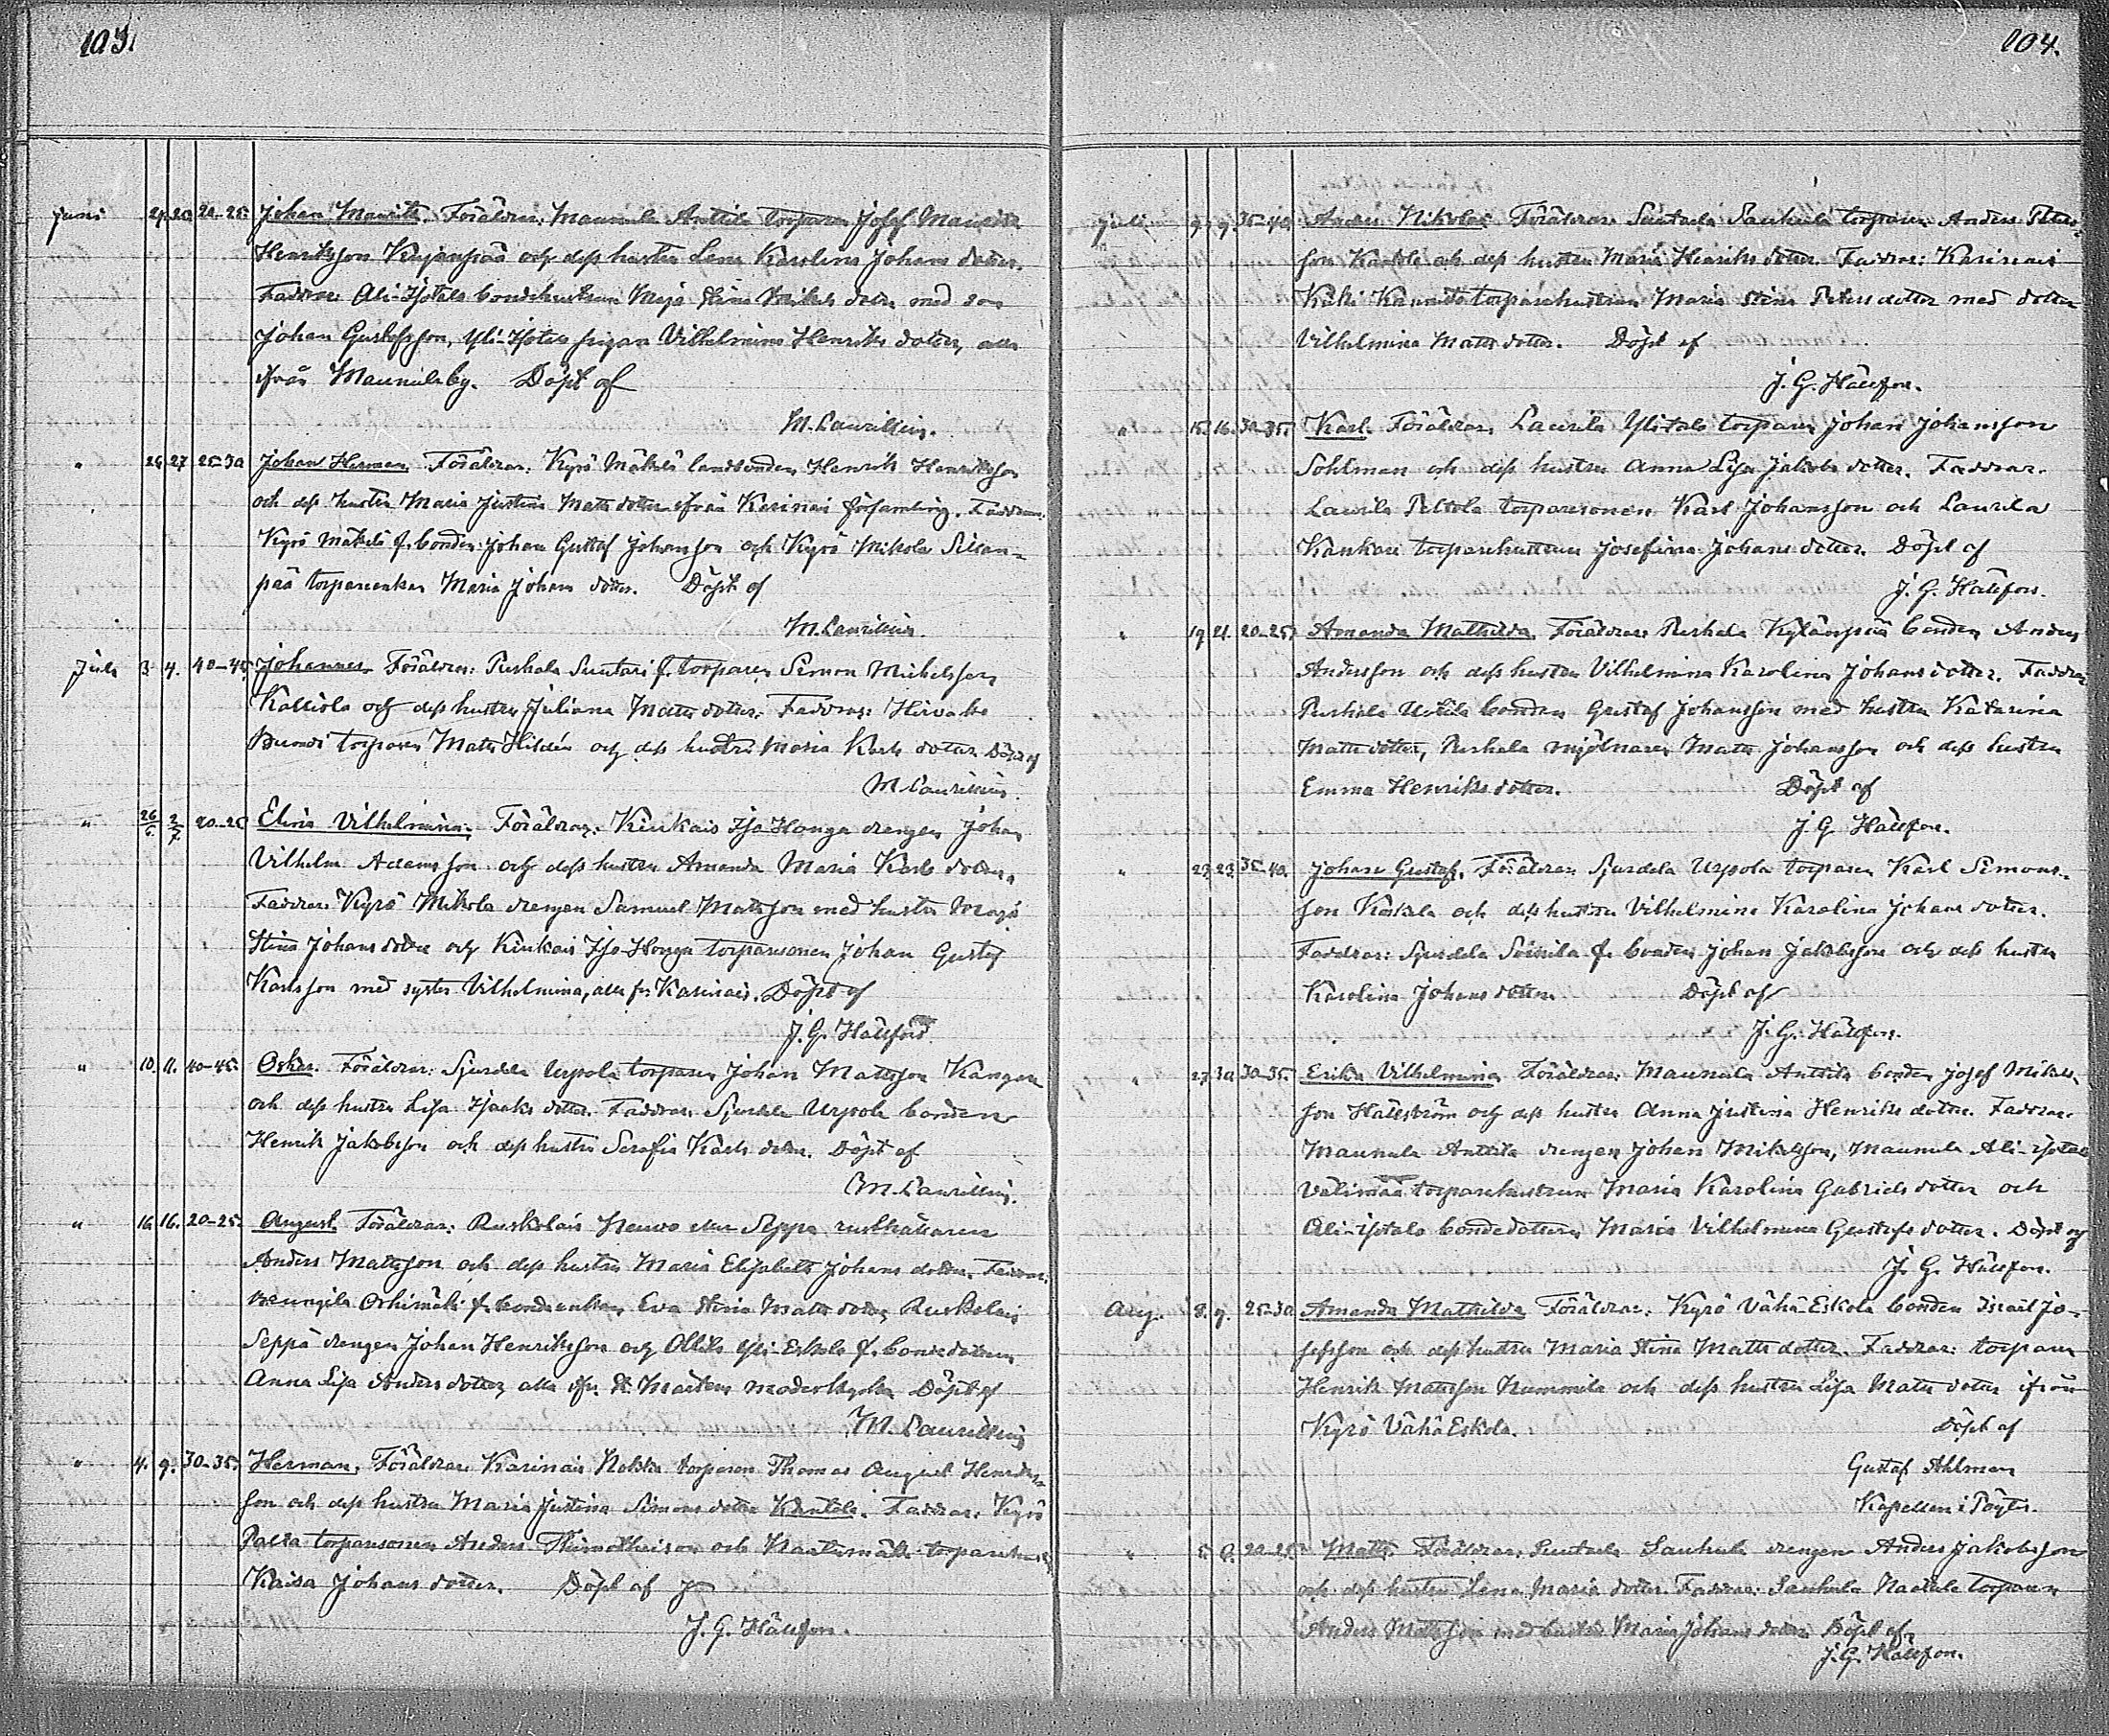 103.
Juni 20-25. Johan Maurits. Föräldrar: Maunula Anttila torparen Josef Maurits
Henriksson Kujanpää och dess hustru Lena Karolina Johans dotter.
Faddrar: Ali-Isotalo bondehustrun Maja Stina Mikels dotter med son
Johan Gustafsson, Yli-Isotalo pigan Vilhelmina Henriks dotter, alla
ifrån Maunula by. Döpt af
M. Laurillius.
" 26. 27. 25-30 Johan Herman. Föräldrar: Kyrö Mäkilä landbonden Henrik Henriksson
och dess hustru Maria Justina Matts dotter ifrån Karinais församling. Faddrar:
Kyrö Mäkilä f. bonden Johan Gustaf Johansson och Kyrö Mikola
pää torpareenkan Maria Johans dotter. Döpt af
M. Laurillius.
Juli 3. 4. 40-45. Johannes. Föräldrar: Puskala Suutari f. torparen Simon Michelsson
Kalliola och dess hustru Juliana Matts dotter. Faddrar: Hirvaho
torparen Matts Hildén och dess hustru Maria Karls dotter Döpt af
M. Laurillius.
" 26/6. 2/7. 20-25 Elina Vilhelmina. Föräldrar: Kiukais Iso-Honga drengen Johan
Vilhelm Adamsson och dess hustru Amanda Maria Karls dotter.
Faddrar: Kyrö Mikola drengen Samuel Matsson med hustru Maja
Stina Johans dotter och Kiukais Iso-Honga torparesonen Johan Gustaf
Karlsson med syster Vilhelmina, alla fr. Karinais. Döpt af
J. G. Hällfors.
" 10. 11. 40-45. Oskar. Föräldrar: Sjurdela Urpola torparen Johan Mattsson Kangas
och dess hustru Lisa Isaks dotter. Faddrar: Sjurdela Urpola bonden
Henrik Jakobsson och dess hustru Serafia Karls dotter. Döpt af
M. Laurillius.
" 16. 16. 20-25. August. Föräldrar: Ruskolais Heuvo eller Seppä rusthållaren
Anders Mattsson och dess hustru Maria Elisabeth Johans dotter. Faddrar:
f. bondeenkan Eva Stina Matts dotter, Ruskolais
Seppä drengen Johan Henriksson och Ollila Yli-Eskola f. bondedottren
Anna Lisa Anders dotter, alla ifr. St. Mårtens moderkyrka Döpt af
M. Laurillius
" 4. 9. 30-35. Herman. Föräldrar: Karinais torparen Thomas August Henriks-
son och dess hustru Maria Justina Simons dotter Kantola. Faddrar: Kyrö
torparesonen Anders och torparehustr.
Kaisa Johans dotter. Döpt af
J. G. Hällfors.
104.
Juli 9. 9. 35-40. Anders Nikolai. Föräldrar: Suutaela Sauhula torparen Anders Peters-
son Kantola och dess hustru Maria Henriks dotter. Faddrar: Karinais
torparehustrun Maria Stina Peters dotter med dotter
Vilhelmina Matts dotter. Döpt af
J. G. Hällfors.
" 15. 16. 30-35. Karl. Föräldrar: Laurila Ylitalo torparen Johan Johansson
Sohlman och dess hustru Anna Lisa Jakobs dotter. Faddrar:
Laurila Peltola torparesonen Karl Johansson och Laurila
Kankare torparehustrun Josefina Johans dotter. Döpt af
J. G. Hällfors.
" 19. 21. 20-25. Amanda Mathilda. Föräldrar: Puskala Kylänpää bonden Anders
Andersson och dess hustru Vilhelmina Karolina Johansdotter. Faddrar:
Puskala Uotila bonden Gustaf Johansson med hustru Katarina
Matts dotter, Puskala mjölnaren Matts Johansson och dess hustru
Emma Henriks dotter. Döpt af
J. G. Hällfors.
" 35-40. Johan Gustaf. Föräldrar: Sjurdela Urpola torparen Karl Simons-
son Koskela och dess hustru Vilhelmina Karolina Johans dotter.
Faddrar: Sjurdela Soinila f. bonden Johan Jakobsson och dess hustru
Karolina Johans dotter. Döpt af
J. G. Hällfors.
" 27. 30. 30-35. Erika Vilhelmina. Föräldrar: Maunula Anttila bonden Josef Mikels-
son Hällström och dess hustru Anna Justina Henriks dotter. Faddrar:
Maunula Anttila drengen Johan Mikelsson, Maunula Ali-Isotalo
Välimaa torparehustrun Maria Karolina Gabriels dotter och
Ali-Isotalo bondedottern Maria Vilhelmina Gustafs dotter. Döpt af
J. G. Hällfors.
Aug. 8. 9. 25-30 Amanda Mathilda. Föräldrar: Kyrö Vähä-Eskola bonden Israel Jo-
sefsson och dess hustru Maria Stina Matts dotter. Faddrar: torparen
Henrik Mattsson Nummila och dess hustru Lisa Matts dotter ifrån
Kyrö Vähä Eskola. Döpt af
Gustaf Ahlman
Kapellan i Pöytis.
" 5. 6. 20-25. Matts. Föräldrar: Suutaela Sauhula drengen Anders Jakobsson
och dess hustru Lena Maria dotter. Faddrar: Sauhula torparen
Anders Mattsson med hustru Maria Johans dotter. Döpt af
J. G. Hällfors.